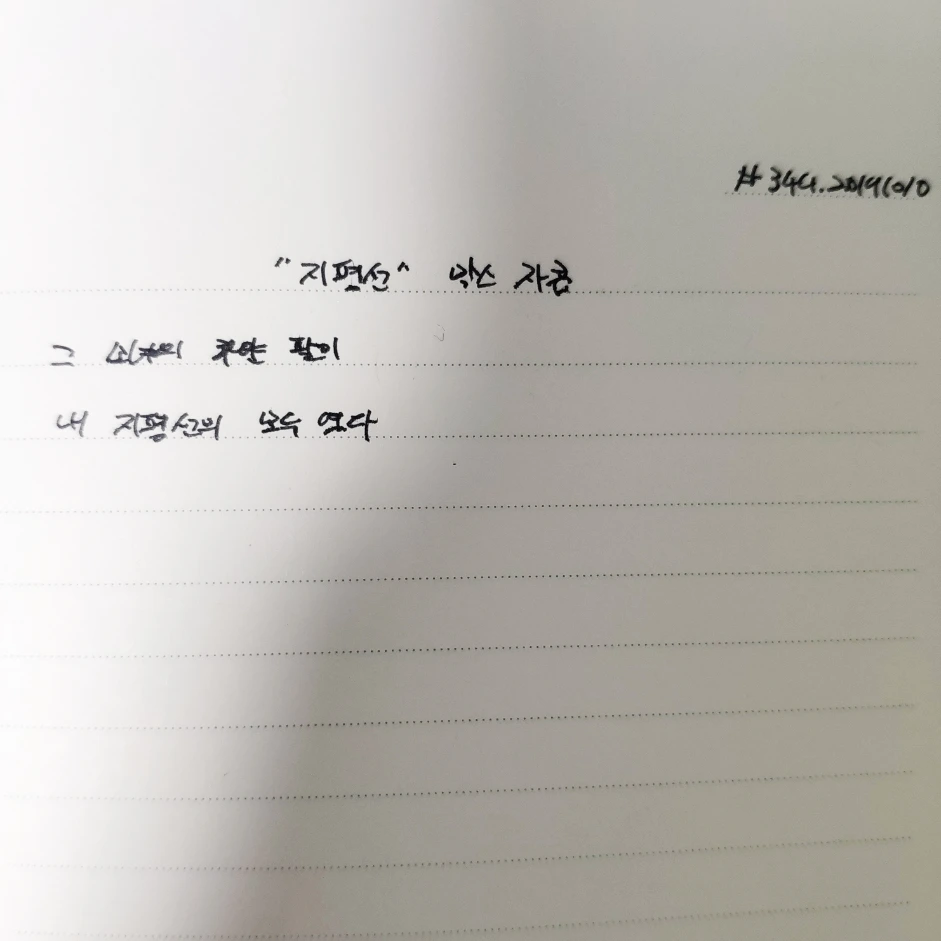 #344.20191010
"지평선" 막스 자콥
그 소녀의 하얀 팔이
내 지평선의 모두 였다